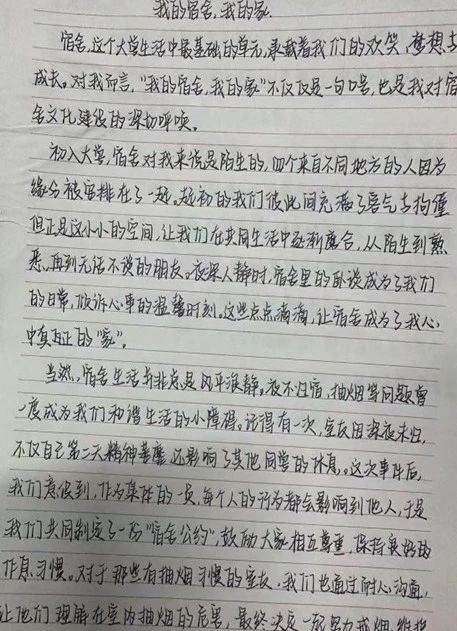 我的宿舍,我的家.
宿舍,这个大学生活中最基础的单元,承载着我们的欢笑、梦想与
成长。对我而言,“我的宿舍,我的家”不仅仅是一句口号,也是我对宿
舍文化建设的深切呼唤。
初入大学,宿舍对我来说是陌生的,四个来自不同地方的人因为
缘分被安排在了一起。起初的我们彼此间充满了客气与拘谨
但正是这小小的空间,让我们在共同生活中逐渐磨合,从陌生到熟
悉,再到无话不谈的朋友。夜深人静时,宿舍里的卧谈成为了我们
的日常,倾诉心事的温馨时刻。这些点点滴滴,让宿舍成为了我心
中真正的“家”。
当然,宿舍生活并非总是风平浪静。夜不归宿,抽烟等问题曾
一度成为我们和谐生活的小障碍。记得有一次,室友因深夜未归,
不仅自己第二天精神萎靡,还影响了其他同学的休息。这次事件后,
我们意识到,作为集体的一员,每个人的行为都会影响到他人,于是
我们共同制定了一份“宿舍公约”,鼓励大家相互尊重,保持良好的
作息习惯。对于那些有抽烟习惯的室友,我们也通过耐心沟通,
让他们理解在室内抽烟的危害,最终决定一起努力戒烟,维护